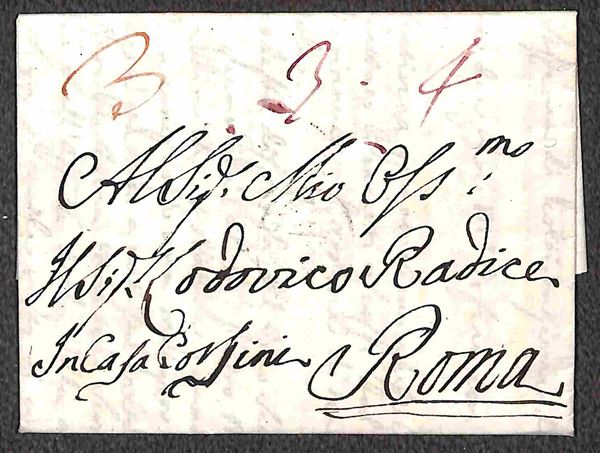 3 3 4
Al Sig.r Mio Oss.mo
Il Sig.r Lodovico Radice
In Casa Corsini Roma